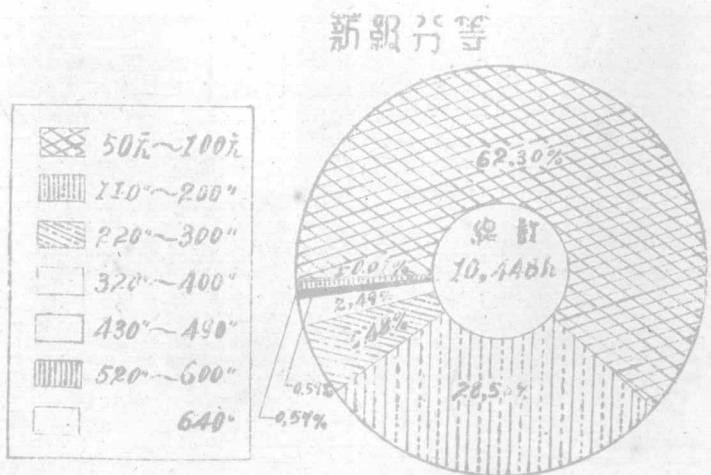 薪級分等
50元～100元
110〃～200〃
220〃～300〃
320〃～400〃
430〃～490〃
520〃～600〃
640〃
62.30%
總計
2.49%
0.57%